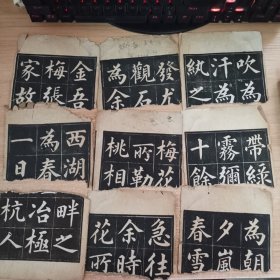 金吾
梅張
家故
發尤
觀石
為余
吹為
汗為
紈之
西湖
為春
一日
梅花
所勒
桃相
帶綠
霧彌
十餘
畔之
冶極
杭人
急往
余時
花所
為朝
夕嵐
春雪